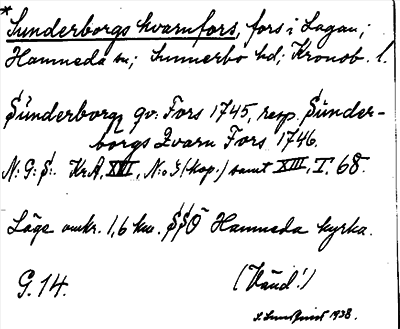 *Sunderborgs kvarnfors, fors i Lagan;
Hamneda sn; Sunnerbo hd; Kronob. l.
Sünderborg qv. Fors 1745, resp. Sünder-
borgs Qvarn Fors 1746.
N: G: S:. Kr.A, XVII, N:o 3 (kop.) samt XIII, T. 68.
Läge omkr. 1,6 km. SSO Hamneda kyrka.
G. 14.
(Vänd!)
1938.